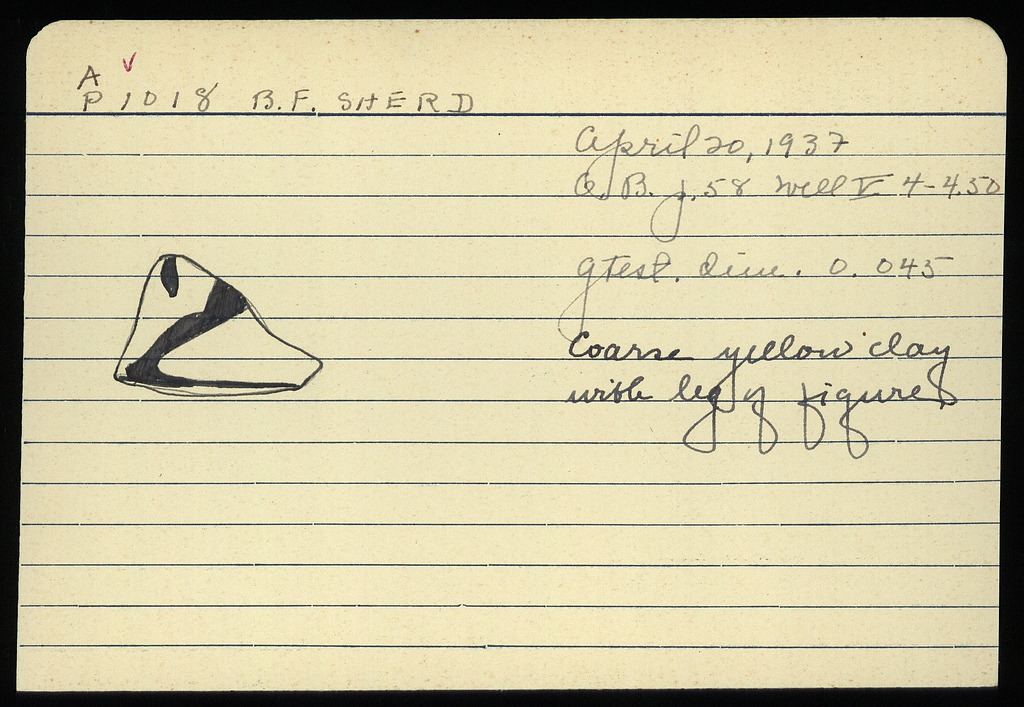 A
P 1018 B.F. SHERD
April 20, 1937
O. B. j. 58 Well V 4-4.50
gtest. dim. 0.045
Coarse yellow clay
with leg of figure,